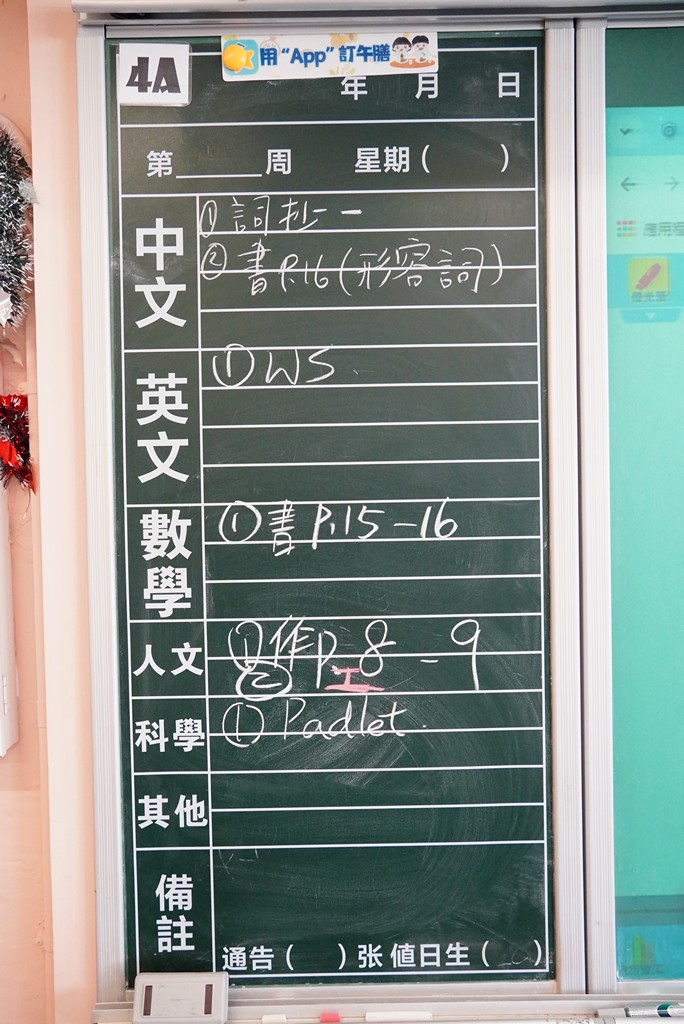 用“App”訂午膳
4A
年 月 日
第______周 星期( )
中文
①詞抄一
②書P.16(形容詞)
英文
①WS
數學
①書P.15-16
人文
①作P.8-9
②
科學
①Padlet.
其他
備註
通告( )张 值日生( )
應用程
螢光筆